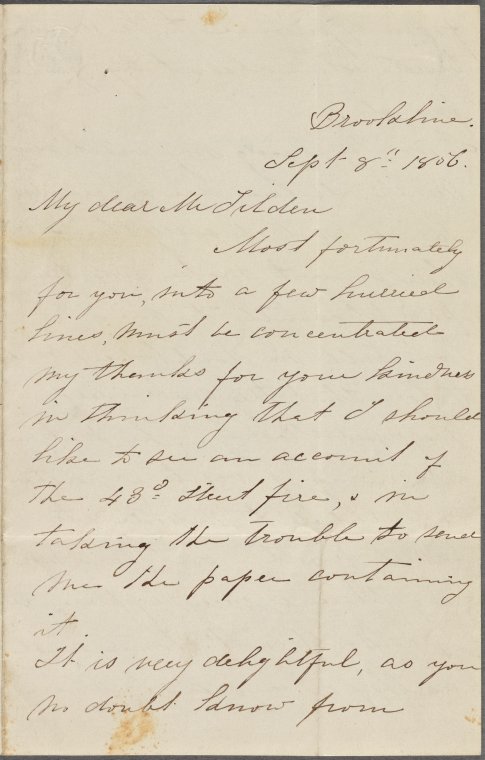 Brookline.
Sept 8" 1856.
My dear Mr Tilden
Most fortunately
for you, into a few hurried
lines, must be concentrated
my thanks for your kindness
in thinking that I should
like to see an account of
the 43d Street fire, & in
taking the trouble to send
me the paper containing
it.
It is very delightful, as you
no doubt know from